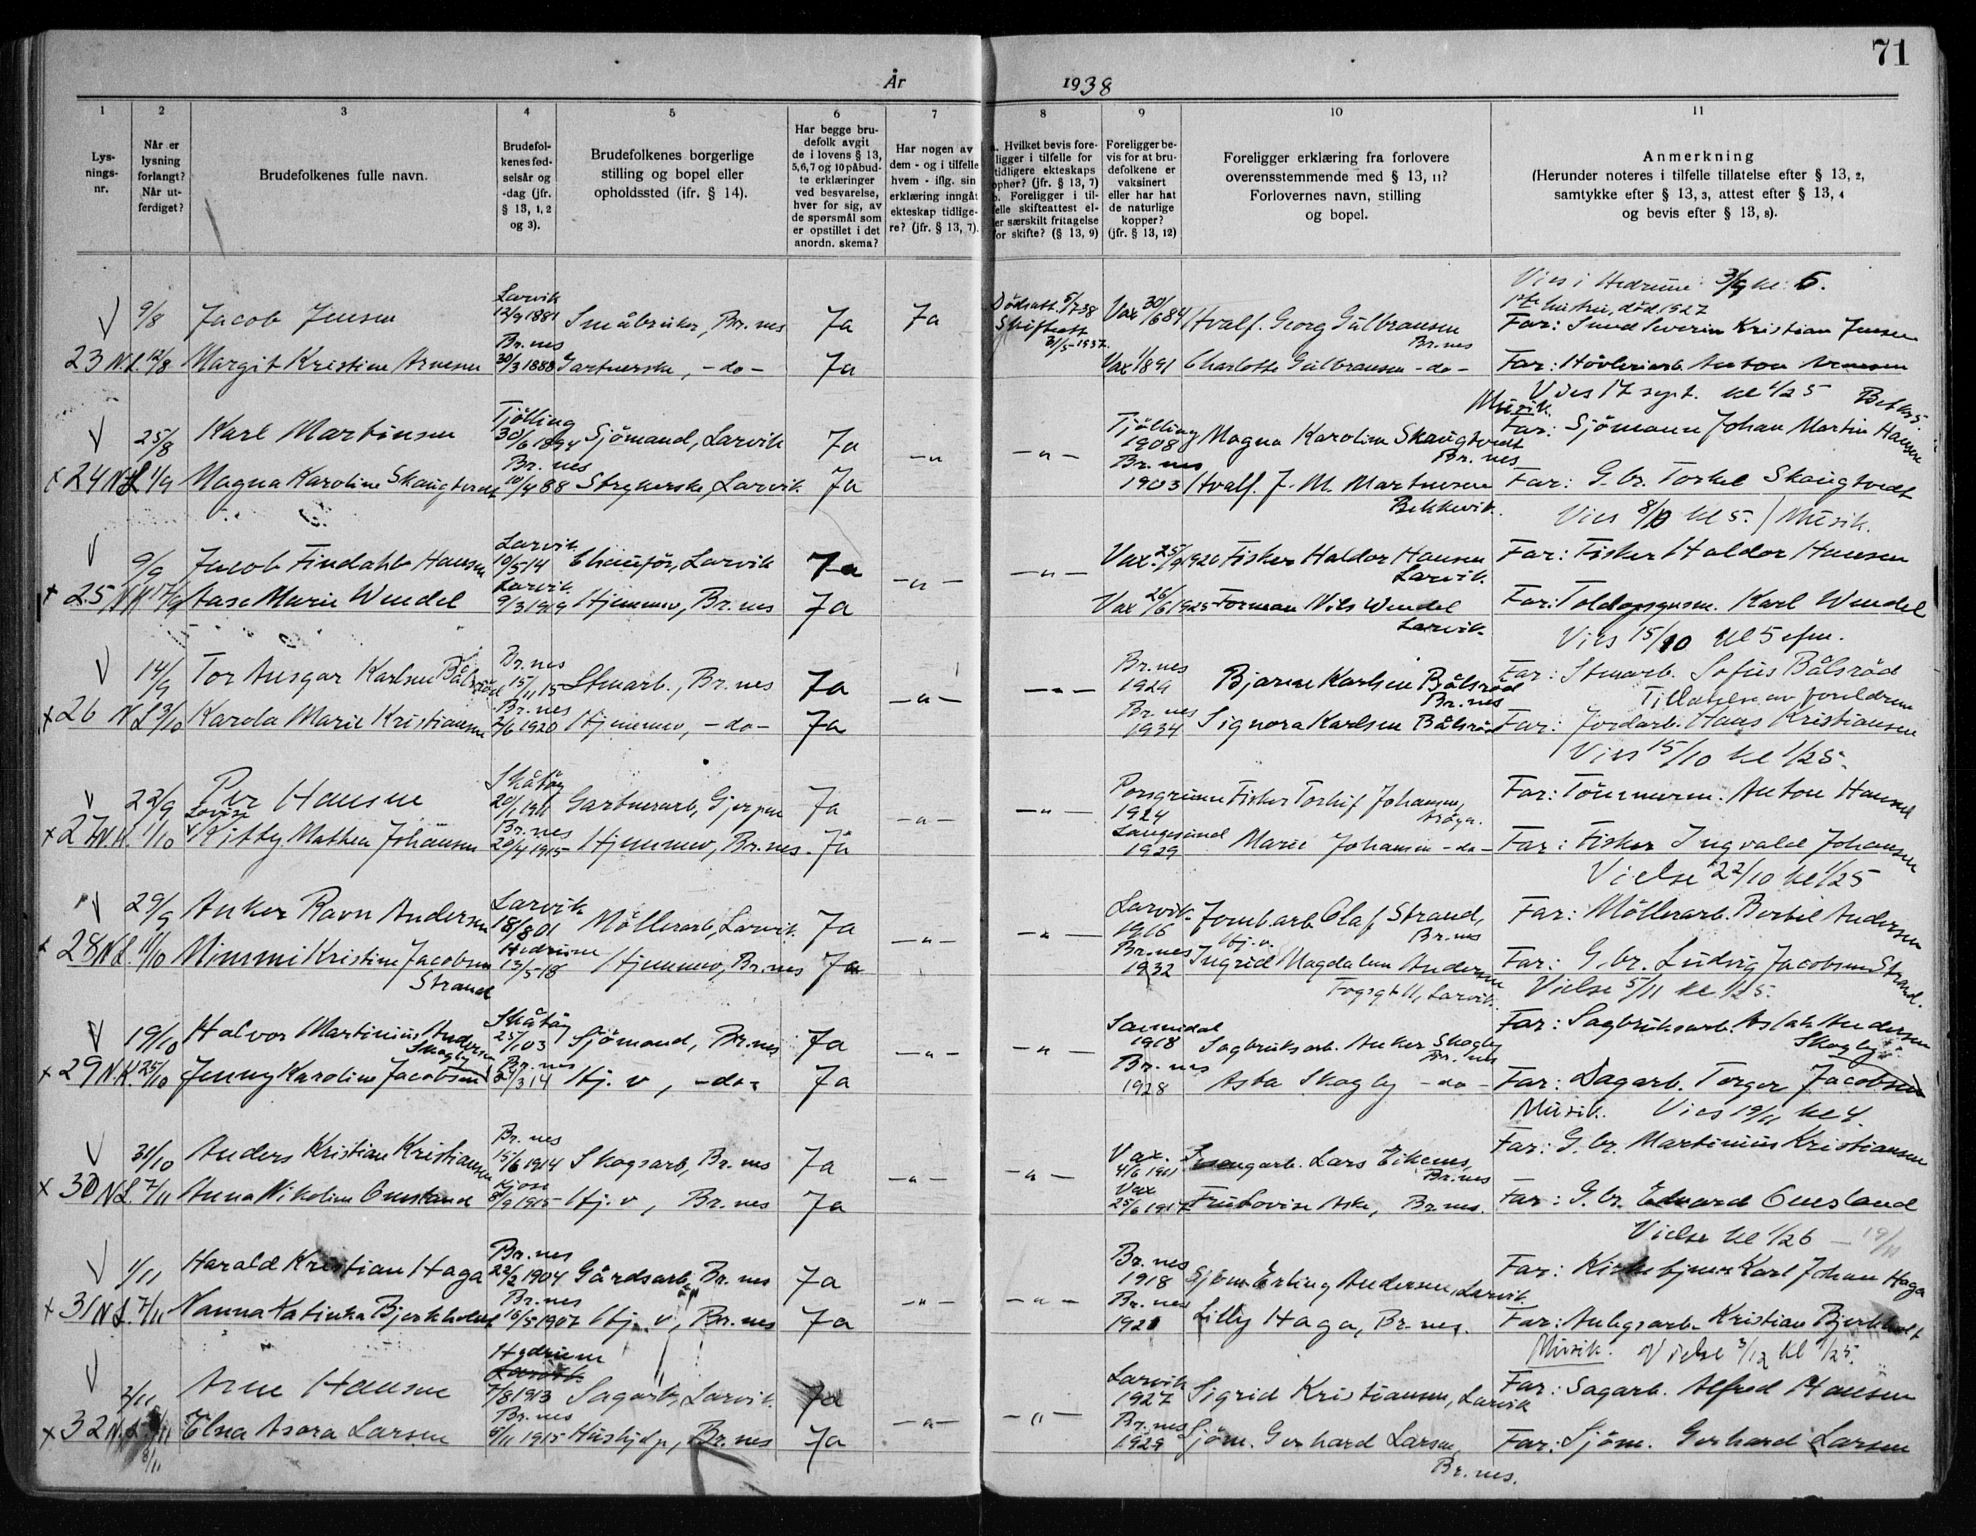 71
År 1938
1 2 3 4 5 6 7 8 9 10 11
Lys-
nings-
nr.
Når er
lysning
forlangt?
Når ut-
ferdiget?
Brudefolkenes fulle navn.
Brudefol-
kenes fød-
selsår og
-dag (jfr.
§ 13, 1, 2
og 3).
Brudefolkenes borgerlige
stilling og bopel eller
opholdssted (ifr. § 14).
Har begge bru-
defolk avgit
de i lovens § 13,
5,6,7 og 10 påbud-
te erklæringer
ved besvarelse,
hver for sig, av
de spørsmål som
er opstillet i det
anordn. skema?
Har nogen av
dem - og i tilfelle
hvem - iflg. sin
erklæring inngåt
ekteskap tidlige-
re? (jfr. § 13, 7).
a. Hvilket bevis fore-
ligger i tilfelle for
tidligere ekteskaps
ophør? (jfr. § 13, 7)
b. Foreligger i til-
felle skifteattest el-
ler særskilt fritagelse
for skifte? (§ 13, 9)
Foreligger be-
vis for at bru-
defolkene er
vaksinert
eller har hat
de naturlige
kopper?
(jfr. § 13, 12)
Foreligger erklæring fra forlovere
overensstemmende med § 13, 11?
Forlovernes navn, stilling
og bopel.
Anmerkning
(Herunder noteres i tilfelle tillatelse efter § 13, 2,
samtykke efter § 13, 3, attest efter § 13, 4
og bevis efter § 13, 8).
Vies i Hedrum 3/9 kl. 6.
1ste hustru, død 1927
V 9/8 Jacob Jensen Larvik 12/9 1881 Småbruker, Br.nes Ja Ja Dødsatt. 5/7 38 Skifteatt 31/5-1937. Vax 30/6 84 Hvalf. Georg Gulbransen Br.nes Far: Severin Kristian Jensen
23 N.L. 12/8 Margit Kristine Arnesen Br.nes 30/3 1888 Gartnerske, -do- Ja Vax 1/8 91 Charlotte Gulbransen -do- Far: Høvleriarb. Anton Arnesen
Vies 17 sept. kl 1/2 5
Musik.
V 25/8 Karl Martinsen Tjølling 30/6 1894 Sjømand, Larvik Ja -"- -"- Tjølling 1908 Magna Karoline Skaugtvedt Br.nes Far: Sjømann Johan Martin Hansen
x 24 N.L. 1/9 Magna Karoline Skaugtvedt Br.nes 10/4 88 Strykerske, Larvik Ja Br.nes 1903 Hvalf. J. M. Martinsen Bekkevik. Far: G.br. Torkel Skaugtvedt
Vies 8/10 kl 5. / Musik.
V 9/9 Jacob Findahl Hansen Larvik 10/5 14 Chaufør, Larvik Ja -"- -"- Vax. 25/9 1920 Fisker Haldor Hansen Larvik. Far: Fisker Haldor Hansen
x 25 N.K. 17/9 Aase Marie Wendel Larvik 9/3 1919 Hjemmev, Br.nes Ja Vax 26/6 1925 Forman Nils Wendel Larvik. Far: Toldopsynsm. Karl Wendel
Vies 15/10 kl 5 efm.
V 14/9 Tor Ansgar Karlsen Bålsrød Br.nes 15/11 15 Stenarb., Br.nes Ja -"- -"- Br.nes 1929 Bjarne Karlsen Bålsrød Br.nes Far: Stenarb. Sofus Bålsrød
Tillatelse av foreldrene
x 26 N.L. 3/10 Karola Marie Kristiansen Br.nes 2/6 1920 Hjemmev, -do- Ja Br.nes 1934 Signora Karlsen Bålsrød Far: Jordarb. Hans Kristiansen
Vies 15/10 kl 1/2 5.
V 22/9 Per Hansen Skåtøy 20/1 1911 Gartnerarb, Gjerpen Ja -"- -"- Porsgrunn 1924 Fisker Torleif Johansen, Far: Tømmerm. Anton Hansen
x 27 N.K. 1/10 Lovise Kitty Mathea Johansen Br.nes 20/4 1915 Hjemmev, Br.nes. Ja Langesund 1929 Marie Johansen -do- Far: Fisker Ingvald Johansen
Vielse 22/10 kl 1/2 5
V 29/9 Anker Ravn Andersen Larvik 18/8 01 Møllerarb, Larvik. Ja -"- -"- Larvik 1916 Jernb.arb. Olaf Strand, Br.nes Far: Møllerarb. Bertil Andersen
x 28 N.L. 11/10 Mimmi Kristine Jacobsen Strand Hedrum 13/5 18 Hjemmev, Br.nes Ja Br.nes 1932 Hj.v. Ingrid Magdalene Andersen Fogsgt 11, Larvik. Far: G.br. Ludvig Jacobsen Strand.
Vielse 5/11 kl 1/2 5.
V 19/10 Halvor Martinius Andersen Skogby Skåtøy 25/1 03 Sjømand, Br.nes Ja -"- -"- Sannidal 1918 Sagbruksarb. Anker Skogby Br.nes Far: Sagbruksarb. Aslak Andersen Skogby
x 29 N.K. 25/10 Jenny Karoline Jacobsen Br.nes 3 14 Hj.v, -do- Ja Br.nes 1928 Asta Skogby -do- Far: Dagarb. Torger Jacobsen
Musik. Vies 19/11 kl 4.
V 31/10 Anders Kristian Kristiansen Br.nes 15/6 1914 Skogsarb, Br.nes Ja -"- -"- Vax. 4/6 1911 Lars Eikenes, Br.nes Far: G.br. Martinius Kristiansen
x 30 N.L. 7/11 Anna Nikoline Omsland Kjose 8/9 1915 Hj.v, Br.nes Ja Vax 25/6 1917 Fru Lovise Aske, Br.nes. Far: G.br. Edvard Omsland
Vielse kl 1/2 6 - 19/11
V 1/11 Harald Kristian Haga Br.nes 22/2 1904 Gårdsarb, Br.nes Ja -"- -"- Br.nes 1918 Sjøm. Erling Andersen, Larvik. Far: Kirketjener Karl Johan Haga
x 31 N.L. 7/11 Nanna Katinka Bjerkholt Br.nes 16/5 1907 Hj.v, Br.nes Ja Br.nes 1921 Lilly Haga, Br.nes. Far: Anlegsarb. Kristian Bjerkholt
Musik. Vielse 3/12 kl 1/2 5.
V 2/11 Arne Hansen Hedrum Larvik 7/8 1913 Sagarb, Larvik. Ja -"- -"- Larvik 1927 Sigrid Kristiansen, Larvik Far: Sagarb. Alfred Hansen
x 32 N.L. 8/11 Elna Asora Larsen Br.nes 5/11 1915 Hushjelp, Br.nes Ja Br.nes 1929 Sjøm. Gerhard Larsen, Br.nes. Far: Sjøm. Gerhard Larsen